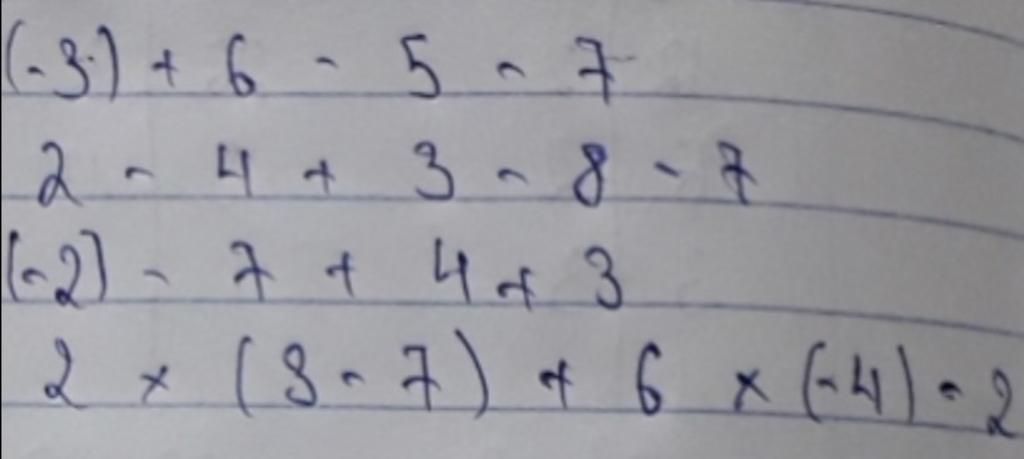 (-3) + 6 - 5 - 7
2 - 4 + 3 - 8 - 7
(-2) - 7 + 4 + 3
2 × (3 - 7) + 6 × (-4) - 2